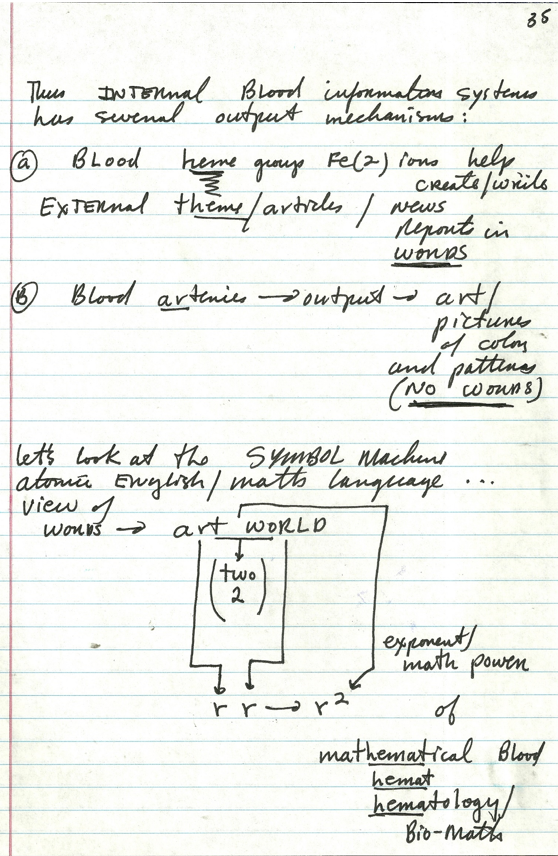 35
Thus INTERNAL Blood information systems
has several output mechanisms:
(a) BLOOD heme group Fe(2) ions help
create/write
EXTERNAL theme/articles/ news
Reports in
WORDS
(B) Blood arteries → output → art/
pictures
of color
and patterns
(NO WORDS)
let's look at the SYMBOL Machine
atomic English/maths language ...
view of
words → art WORLD
(two
2)
exponent/
math power
r r → r²
of
mathematical Blood
hemat
hematology/
Bio-Maths